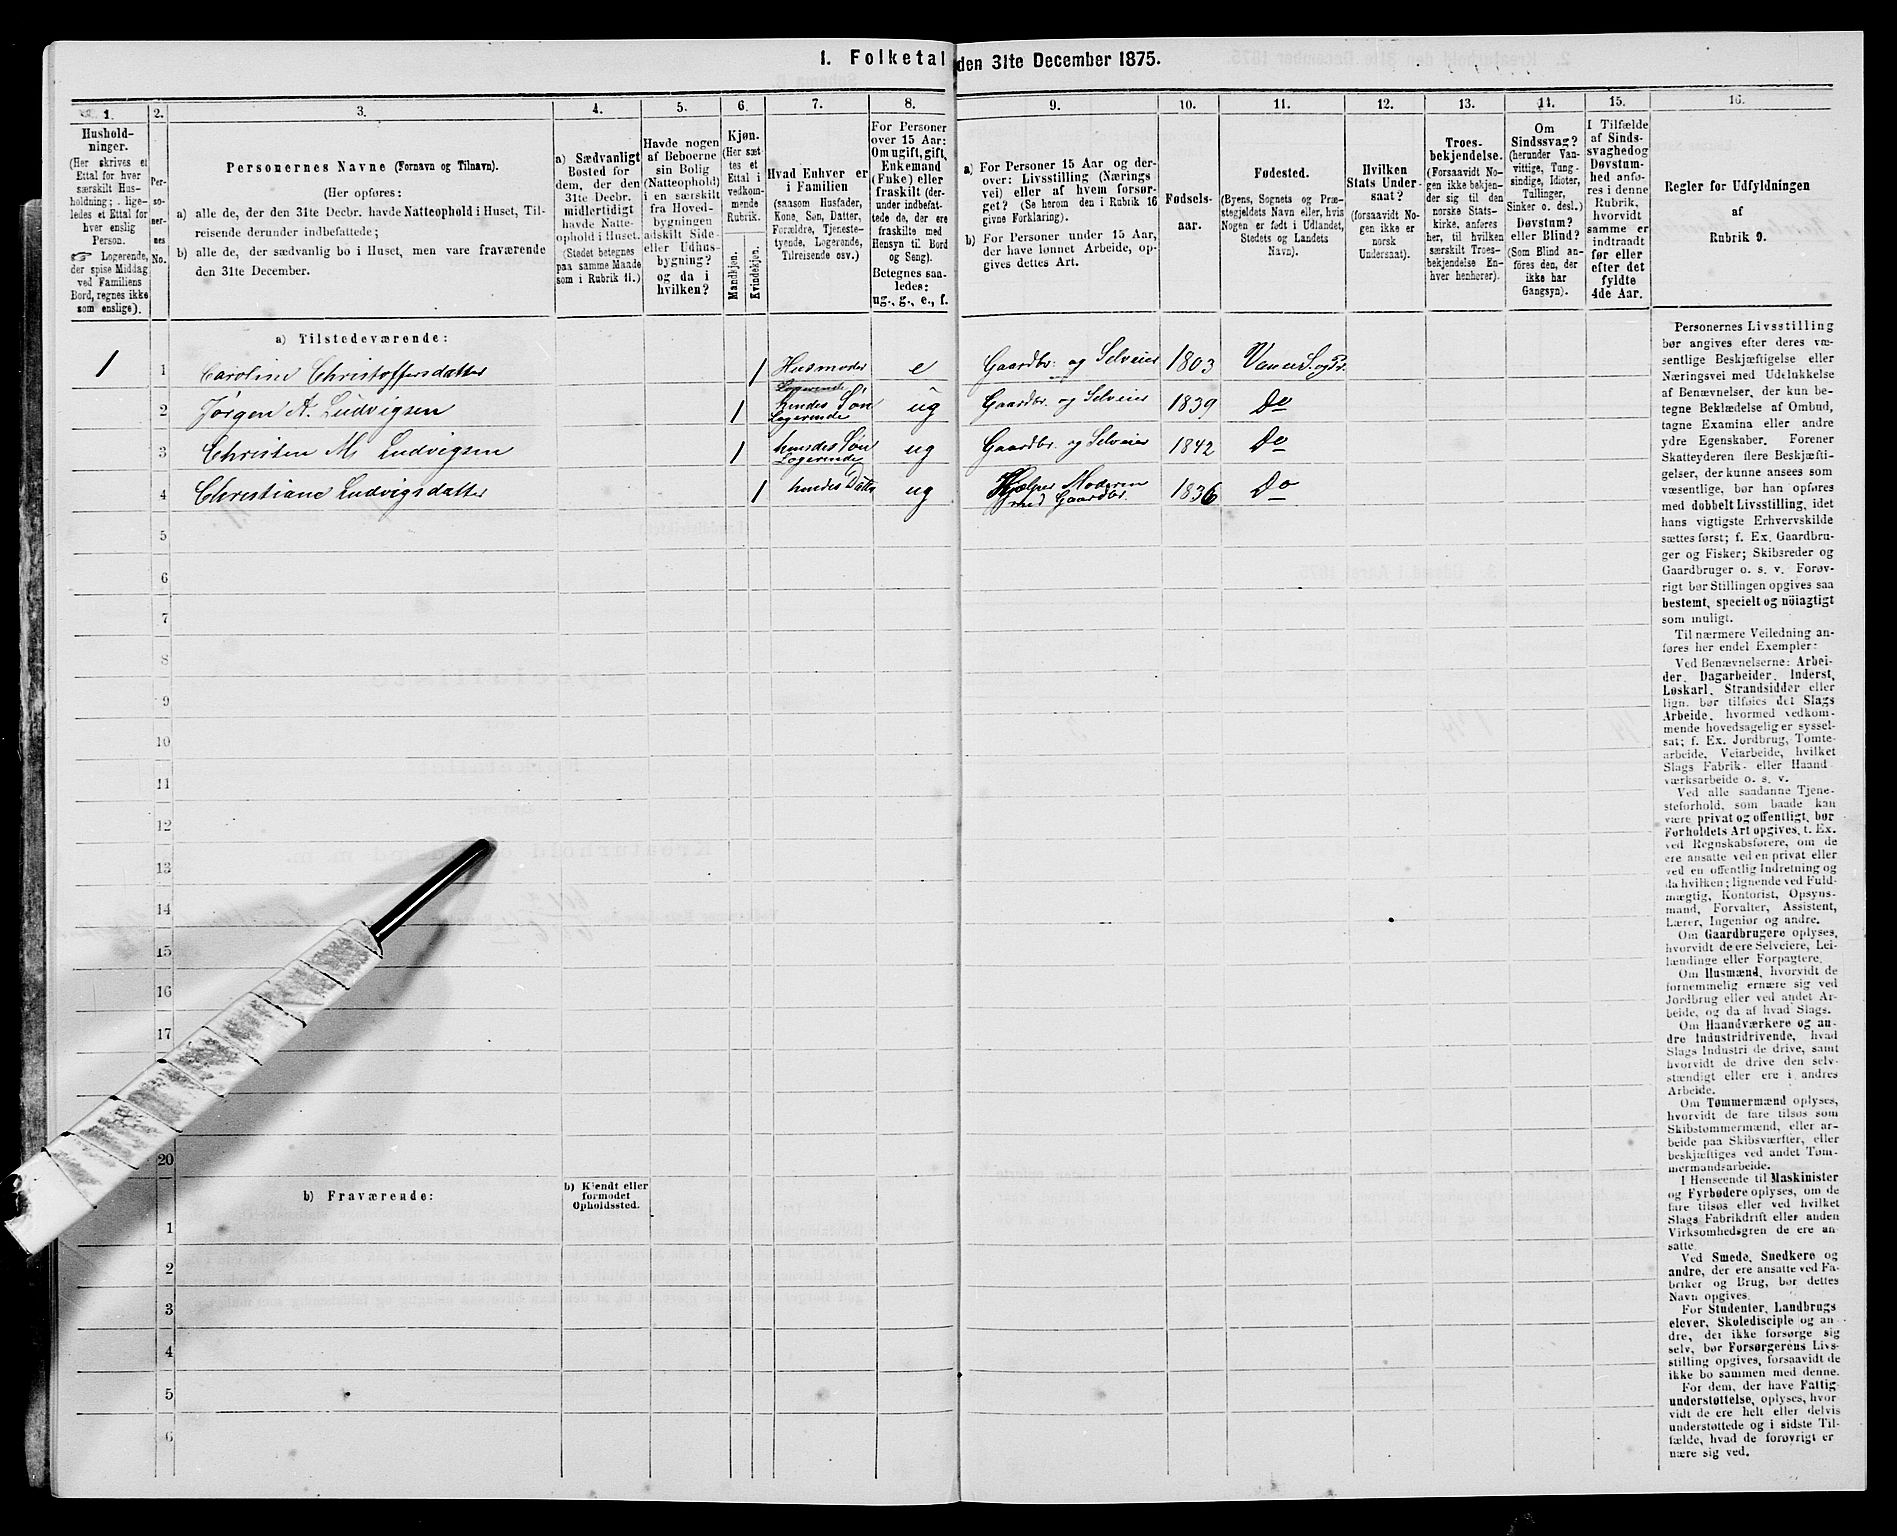 1. Folketal den 31te December 1875.
1.
2.
3.
4.
5.
6.
7.
8.
9.
10.
11.
12.
13.
14.
15.
16.
Hushold-
ninger.
(Her skrives et
Ettal for hver
særskilt Hus-
holdning; lige-
ledes et Ettal for
hver enslig
Person.
☞ Logerende,
der spise Middag
ved Familiens
Bord, regnes ikke
som enslige).
Per-
so-
ner-
nes
No.
Personernes Navne (Fornavn og Tilnavn).
(Her opføres:
a) alle de, der den 31te Decbr. havde Natteophold i Huset, Til-
reisende derunder indbefattede;
b) alle de, der sædvanlig bo i Huset, men vare fraværende
den 31te December.
a) Sædvanligt
Bosted for
dem, der den
31te Decbr.
midlertidigt
havde Natte-
ophold i Huset.
(Stedet betegnes
paa samme Maade
som i Rubrik 11.)
Havde nogen
af Beboerne
sin Bolig
(Natteophold)
i en særskilt
fra Hoved-
bygningen
adskilt Side-
eller Udhus-
bygning?
og da i
hvilken?
Kjøn.
(Her sæt-
tes et
Ettal i
vedkom-
mende
Rubrik.
Mandkjøn.
Kvindekjøn.
Hvad Enhver er
i Familien
(saasom Husfader,
Kone, Søn, Datter,
Forældre, Tjeneste-
tyende, Logerende,
Tilreisende osv.)
For Personer
over 15 Aar:
Om ugift, gift,
Enkemand
(Enke) eller
fraskilt (der-
under indbefat-
tede de, der ere
fraskilte med
Hensyn til Bord
og Seng).
Betegnes saa-
ledes:
ug., g., e., f.
a) For Personer 15 Aar og der-
over: Livsstilling (Nærings
vei) eller af hvem forsør-
get? (Se herom den i Rubrik 16
givne Forklaring).
b) For Personer under 15 Aar,
der have lønnet Arbeide, op-
gives dettes Art.
Fødsels-
aar.
Fødested.
(Byens, Sognets og Præ-
stegjeldets Navn eller, hvis
Nogen er født i Udlandet,
Stedets og Landets
Navn).
Hvilken
Stats Under-
saat?
(forsaavidt No-
gen ikke er
norsk
Undersaat).
Troes-
bekjendelse.
(Forsaavidt No-
gen ikke bekjen-
der sig til den
norske Stats-
kirke, anføres
her, til hvilken
særskilt Troes-
bekjendelse En-
hver henhører).
Om
Sindssvag?
(herunder Van-
vittige, Tung-
sindige, Idioter,
Tullinger,
Sinker o. desl.)
Døvstum?
eller Blind?
(Som Blind an-
føres den, der
ikke har
Gangsyn).
I Tilfælde
af Sinds-
svaghed og
Døvstum-
hed anfø-
res i denne
Rubrik,
hvorvidt
samme er
indtraadt
før eller
efter det
fyldte
4de Aar.
Regler for Udfyldningen
af
Rubrik 9.
a) Tilstedeværende:
1 1 Caroline Christoffersdatter 1 Husmoder e Gaardbr. og Selveier 1803 Vanse S. og Pr.
Logerende
2 Jørgen A. Ludvigsen 1 hendes Søn ug Gaardbr. og Selveier 1839 Do
Logerende
3 Christen M. Ludvigsen 1 hendes Søn ug Gaardbr. og Selveier 1842 Do
Logerende
4 Christiane Ludvigsdatter 1 hendes Datter ug Hjelper Moderen 1836 Do
med Gaardbr.
5
6
7
8
9
10
11
12
13
14
15
16
17
20
b) Fraværende:
b) Kjendt eller
formodet
Opholdssted.
1
2
3
4
5
6
Personernes Livsstilling
bør angives efter deres væ-
sentlige Beskjæftigelse eller
Næringsvei med Udelukkelse
af Benævnelser, der kun be-
tegne Beklædelse af Ombud,
tagne Examina eller andre
ydre Egenskaber. Forener
Skatteyderen flere Beskjæfti-
gelser, der kunne ansees som
væsentlige, bør han opføres
med dobbelt Livsstilling, idet
hans vigtigste Erhvervskilde
sættes først; f. Ex. Gaardbru-
ger og Fisker; Skibsreder og
Gaardbruger o. s. v. Forøv-
rigt bør Stillingen opgives saa
bestemt, specielt og nöiagtigt
som muligt.
Til nærmere Veiledning an-
føres her endel Exempler:
Ved Benævnelserne: Arbei-
der, Dagarbeider, Inderst,
Løskarl, Strandsidder eller
lign. bør tilføies det Slags
Arbeide, hvormed vedkom-
mende hovedsagelig er syssel-
sat; f. Ex. Jordbrug, Tomte-
arbeide, Veiarbeide, hvilket
Slags Fabrik- eller Haand
værksarbeide o. s. v.
Ved alle saadanne Tjene-
steforhold, som baade kan
være privat og offentligt, bør
Forholdets Art opgives, t. Ex.
ved Regnskabsførere, om de
ere ansatte ved en privat eller
ved en offentlig Indretning og
da hvilken; lignende ved Fuld-
mægtig, Kontorist, Opsyns-
mand, Forvalter, Assistent,
Lærer, Ingeniør og andre.
Om Gaardbrugere oplyses,
hvorvidt de ere Selveiere, Lei-
lændinge eller Forpagtere.
Om Husmænd, hvorvidt de
fornemmelig ernære sig ved
Jordbrug eller ved andet Ar-
beide, og da af hvad Slags.
Om Haandværkere og an-
dre Industridrivende, hvad
Slags Industri de drive, samt
hvorvidt de drive den selv-
stændigt eller ere i andres
Arbeide.
Om Tømmermænd oplyses,
hvorvidt de fare tilsøs som
Skibstømmermænd, eller ar-
beide paa Skibsværfter, eller
beskjæftiges ved andet Tøm-
mermandsarbeide.
I Henseende til Maskinister
og Fyrbødere oplyses, om de
fare tilsøs eller ved hvilket
Slags Fabrikdrift eller anden
Virksomhedsgren de ere an-
satte.
Ved Smede, Snedkere og
andre, der ere ansatte ved Fa-
briker og Brug, bør dettes
Navn opgives.
For Studenter, Landbrugs
elever, Skoledisciple og an
dre, der ikke forsørge sig
selv, bør Forsørgerens Livs-
stilling opgives, forsaavidt de
ikke bo sammen med denne.
For dem, der have Fattig
understøttelse, oplyses, hvor
vidt de ere helt eller delvis
understøttede og i sidste Til-
fælde, hvad de forøvrigt er
nære sig ved.